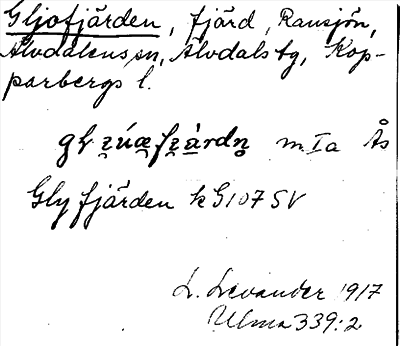 Gljofjärden, fjärd, Ransjön,
Älvdalens sn, Älvdals tg, Kop-
parbergs l.
m Ia Ås
Gly fjärden k G107 SV
L. Levander 1917
Ulma 339:2